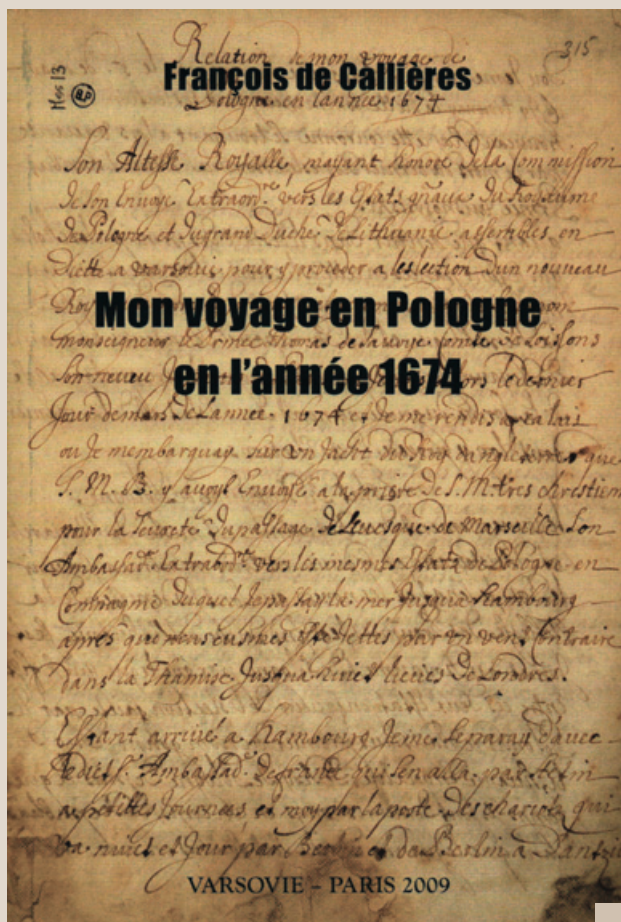 Relation de mon voyage de
315
Mss 13
François de Callières
Pologne en lannée 1674
Son Altesse Royalle, mayant honoré de la Commission
de son Envoyé Extraord.re vers les Estats gnaux du Royaume
de Pologne et du grand Duché de Lithuanie assemblés en
Diette a varsovie pour y proceder a leslection dun nouveau
Roy
Mon voyage en Pologne
monseigneur le Prince Thomas de Savoye Comte de Soissons
son neveu
en l'année 1674
Jour de mars de Lannée 1674 et me rendis a Calais
ou Je membarquay sur un Jacht du Roy dangleterre que
S. M. B. y avoyt Envoyé a la priere de S. M. tres chrestiene
pour la seureté du passage de Levesque de Marseille son
Ambassad.r Extraord.re vers les mesmes Estats de Pologne en
Compagnie duquel Je passay la mer Jusqua Hambourg
apres que nous eusmes esté Jettes par un vent Contraire
dans la Thamise Jusqua huict lieues de Londres.
Estant arrivé a Hambourg Je me separay davec
ledit Sr. Ambassad.r de france qui sen alla par
a petittes Journées et moy par la poste des chariots qui
va nuict et Jour par Berlin et de Berlin a
VARSOVIE – PARIS 2009